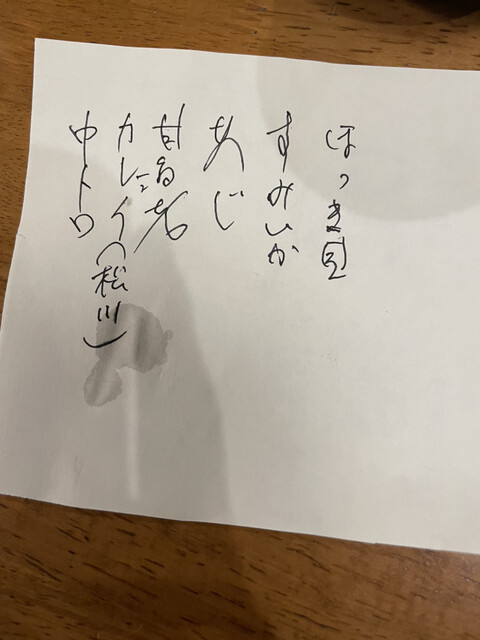 ほっき貝
すみいか
あじ
甘海老
カレイ（松川）
中トロ